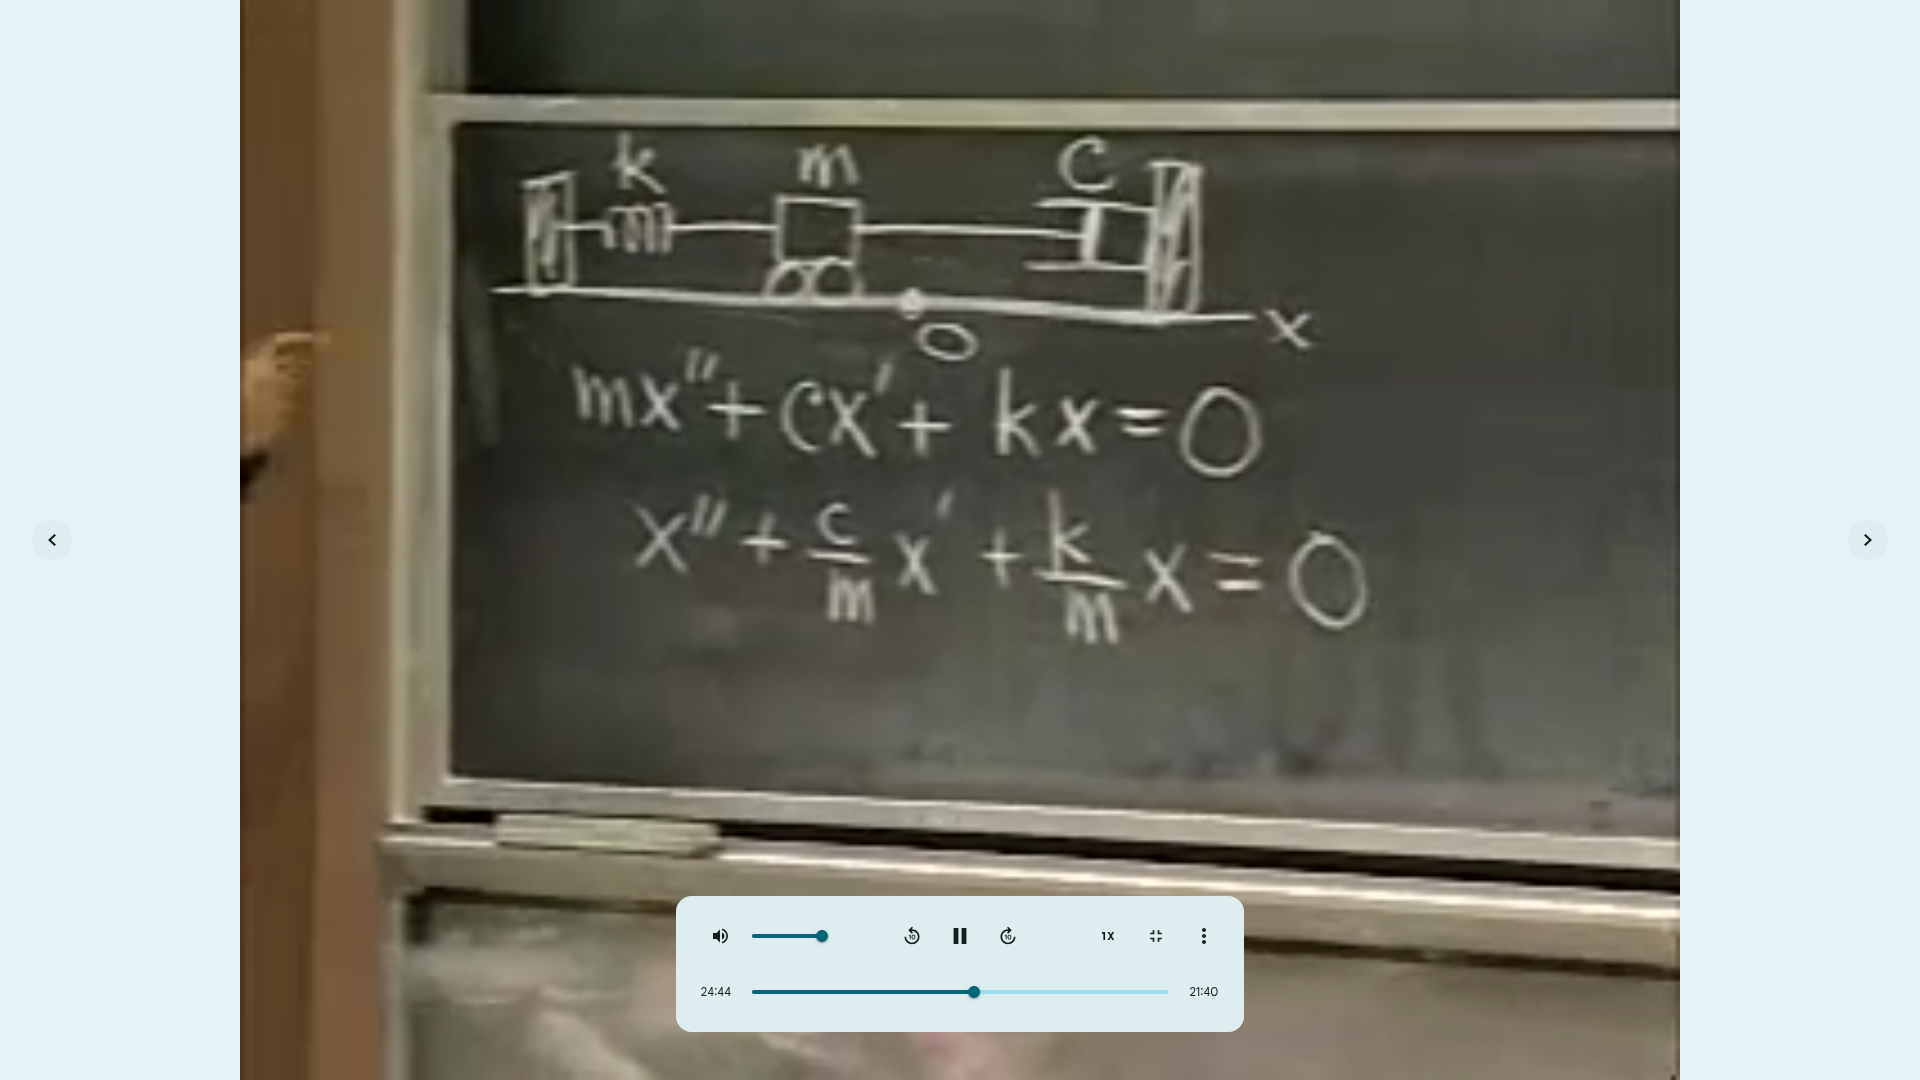 k m C
0 x
mx'' + cx' + kx = 0
x'' + c/m x' + k/m x = 0
10 10 1X
24:44 21:40